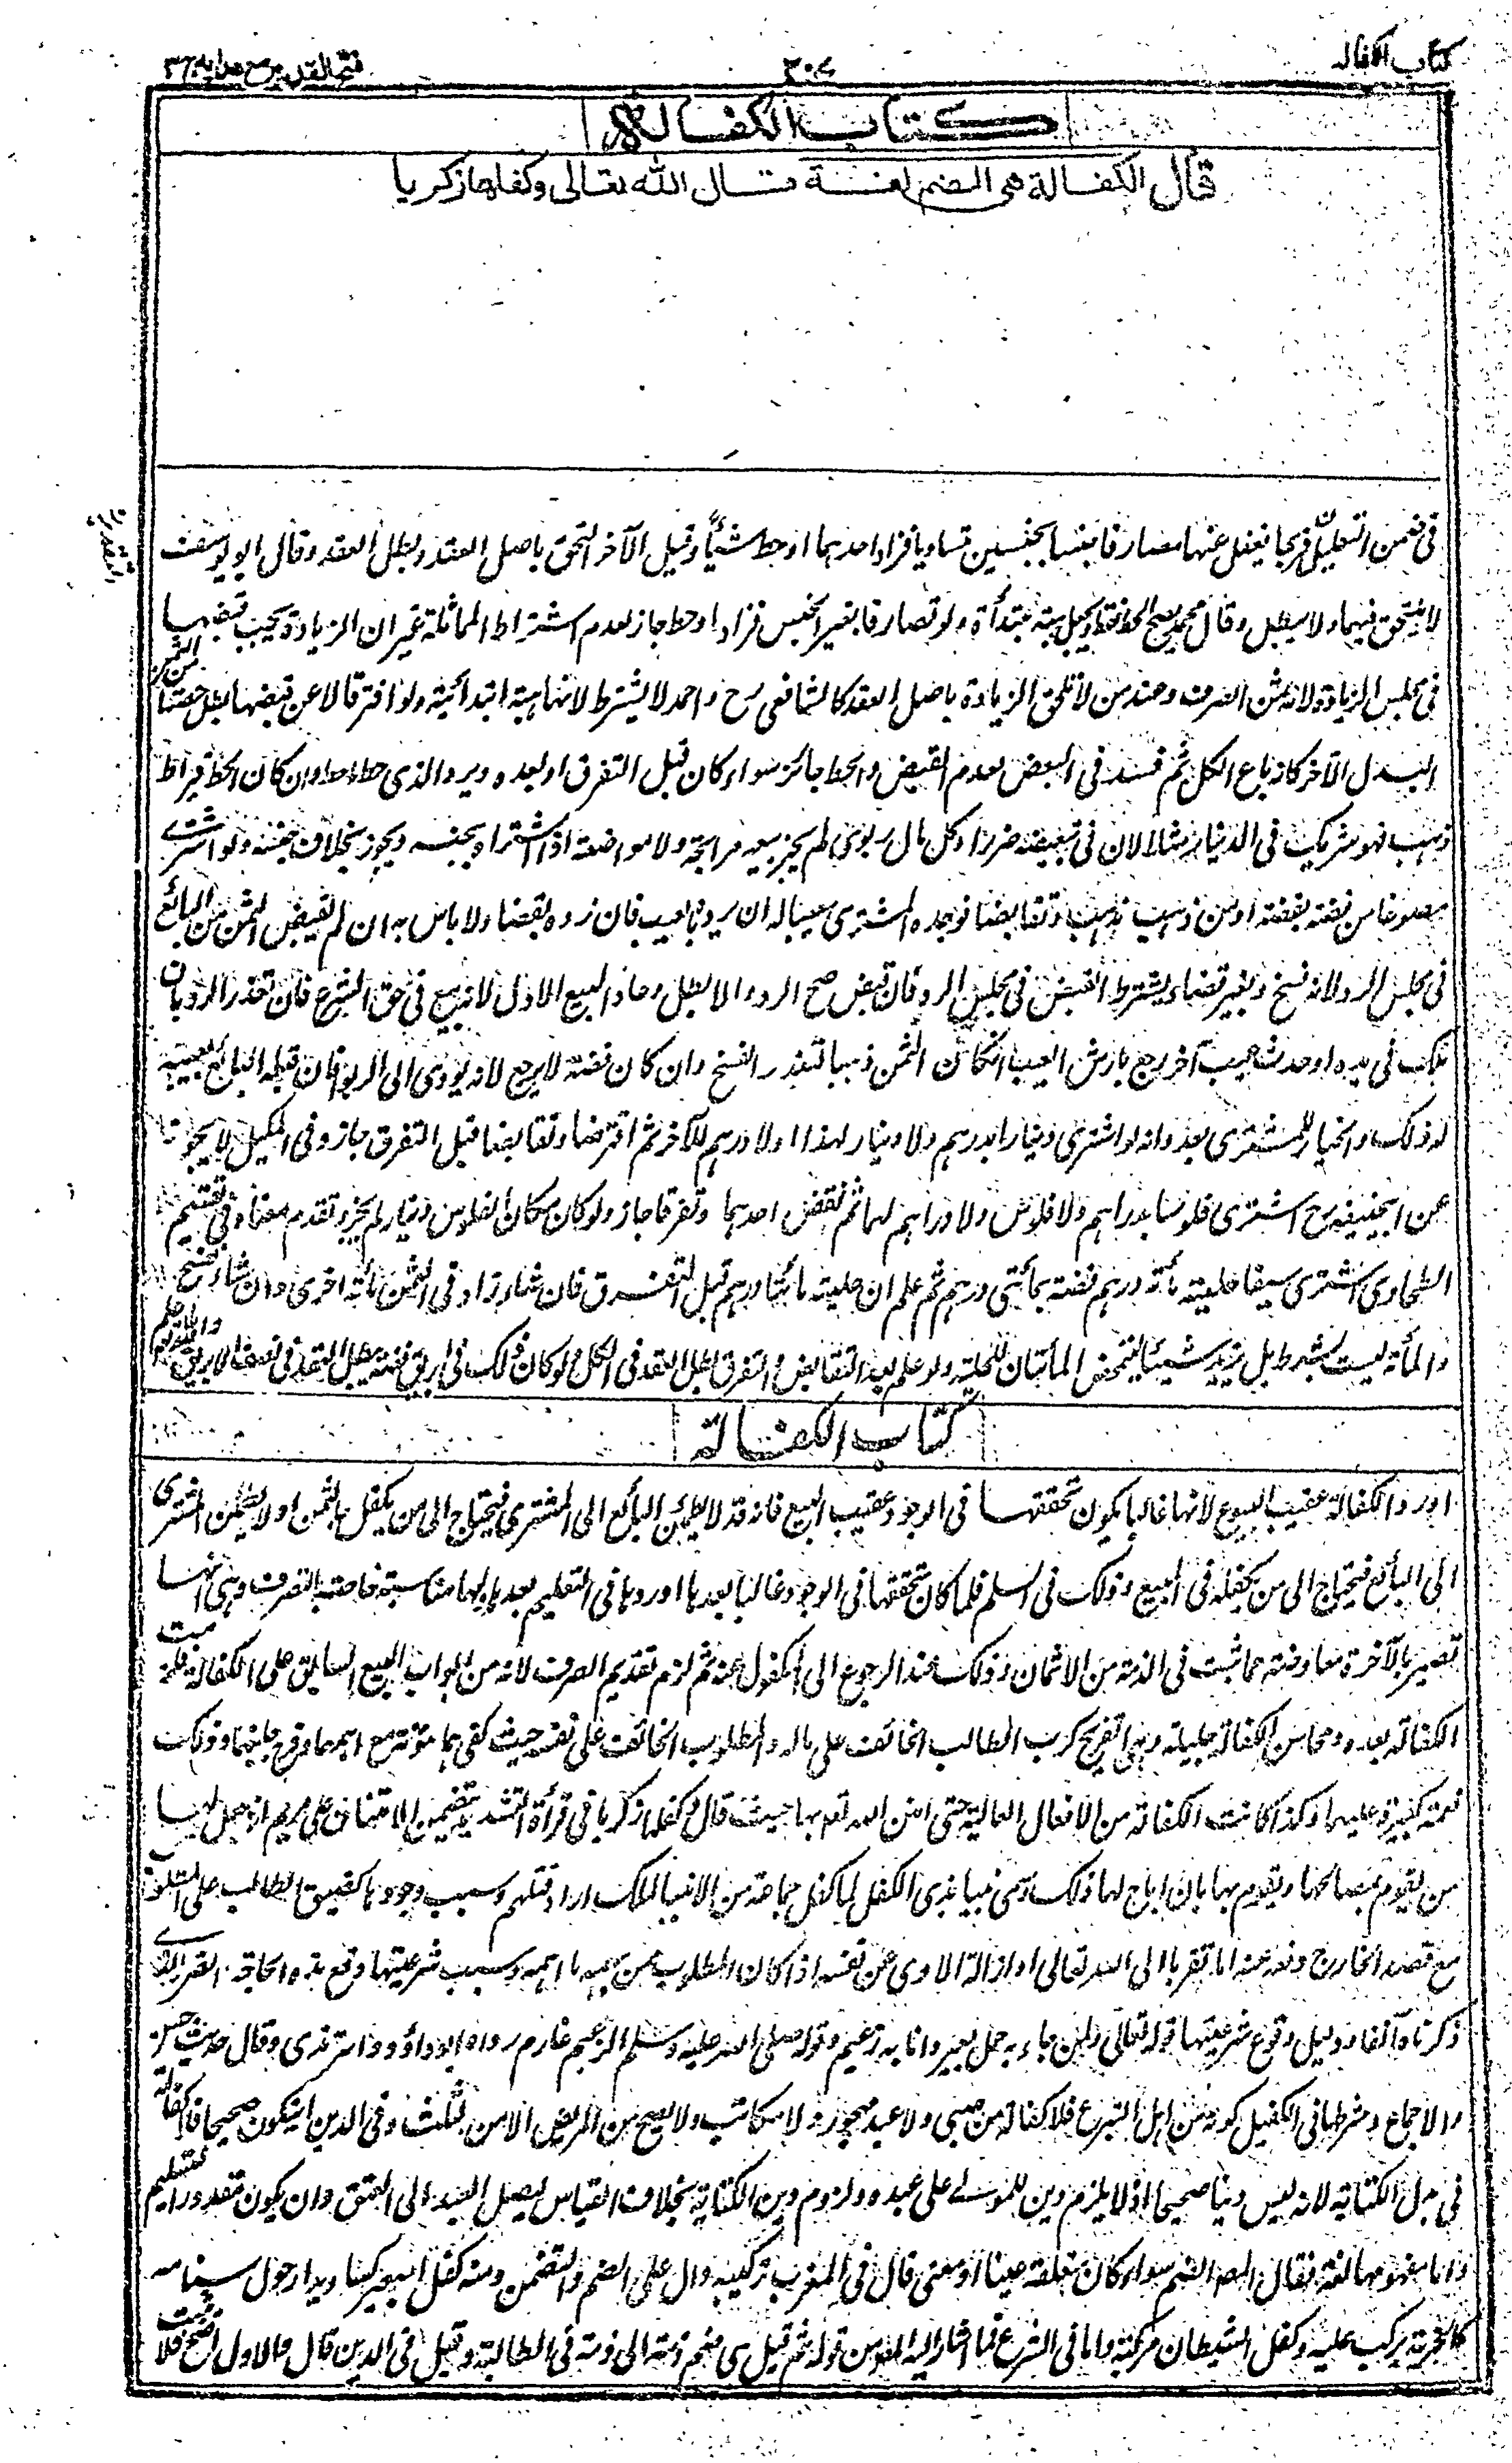 كتاب الكفالة
٣٠٤
فتح القدير مع هدايه ج٣
كتاب الكفالة
قال الكفالة هي الضم لغة قال الله تعالى وكفلها زكريا
في ضمن التعليل فربما يغفل عنها تصارفا جنسا بجنس متساويا فزاد احدهما او حط شيئا وقبل الآخر التحق باصل العقد وبطل العقد وقال ابو يوسف
لا يلتحق فيهما ولا يبطل وقال محمد يصح الحط فقط ويجعل هبة مبتدأة ولو تصارفا بغير الجنس فزاد او حط جاز لعدم اشتراط المماثلة غير ان الزيادة يجب قبضها
في مجلس الزيادة لانه ثمن الصرف وعند من لا تلحق الزيادة باصل العقد كالشافعي رح واحمد لا يشترط لانها هبة ابتدائية ولو افترقا لا عن قبضها بطل حصتها من الثمن
البدل الآخر كانه باع الكل ثم فسد في البعض لعدم القبض والحط جائز سواء كان قبل التفرق او بعده ويرد الذي حط ما حط وان كان الحط قيراط
ذهب فهو شريك في الدينار مثلا لان في تبعيضه ضررا وكل مال ربوي لم يجز بيعه مرابحة ولا مواضعة اذا اشتراه بجنسه ويجوز بخلاف جنسه ولو اشترى
مصوغا من فضة بفضة او من ذهب بذهب وتقابضا فوجده المشتري معيبا له ان يرد بالعيب فان رده بقضا ولا باس به ان لم يقبض الثمن من البائع
في مجلس الرد لانه فسخ وبغير قضاء يشترط القبض في مجلس الرد فان قبض صح الرد والا بطل وعاد البيع الاول لانه بيع في حق الشرع فان تعذر الرد بان
هلك في يده او حدث عيب آخر رجع بارش العيب ان كان الثمن ذهبا لتعذر الفسخ وان كان فضة لا يرجع لانه يؤدي الى الربوا فان قبله البائع بعيبه
له ذلك ولا خيار للمشتري بعد وانه لو اشترى دينارا بدرهم ولا دينار لهذا ولا درهم للآخر ثم اقترضا وتقابضا قبل التفرق جاز وفي المكيل لا يجوز
عن ابي حنيفة رح اشترى فلوسا بدراهم ولا فلوس ولا دراهم لهما ثم نقد احدهما وتفرقا جاز ولو كان مكان الفلوس دينار لم يجز وتقدم معناه وفي
الطحاوي اشترى سيفا حليته مائة درهم فضة بمائتي درهم ثم علم ان حليته مائتا درهم قبل التفرق فان شاء زاد في الثمن مائة اخرى وان شاء فسخ
والمائة ليست بشرط بل يزيد شيئا ليتمحض المائتان للحلية ولو علم بعد التقابض والتفرق بطل العقد في الكل ولو كان ذلك في ابريق فضة يبطل العقد في نصف الابريق والله اعلم
كتاب الكفالة
اورد الكفالة عقيب البيوع لانها غالبا يكون تحققها في الوجود عقيب البيع فانه قد لا يطمئن البائع الى المشتري فيحتاج الى من يكفل بالثمن او لا يطمئن المشتري
الى البائع فيحتاج الى من يكفله في المبيع وذلك في السلم فلما كان تحققها في الوجود غالبا بعدها اوردها في التعليم بعدها ولها مناسبة خاصة بالصرف وهي انها
تصير بالآخرة معاوضة عما ثبت في الذمة من الاثمان وذلك عند الرجوع الى المكفول عنه ثم لزم تقديم الصرف لانه من ابواب البيع السابق على الكفالة فلزمت
الكفالة بعده ومحاسن الكفالة جليلة وهي تفريج كرب الطالب الخائف على ماله والمطلوب الخائف على نفسه حيث كفي هما مؤنة مع اهمهما وفرج جليهما وذلك
نعمة كبيرة عليهما ولذا كانت الكفالة من الافعال العالية حتى امتن الله تعالى بها حيث قال وكفلها زكريا في قرأة التشديد يتضمن الامتنان على مريم اذ جعل لها
من يقوم بمصالحها ويقوم بها بان اباح لها ذلك وسمى نبيا بذي الكفل لما كفل جماعة من الانبيا لملك اراد قتلهم وسبب وجودها تضييق الطالب على المطلوب
مع قصد الخارج رفعه عنه اما تقربا الى الله تعالى او ازالة الاذى عن نفسه اذا كان المطلوب ممن يهمه ما اهمه وسبب شرعيتها دفع هذه الحاجة والضرر الذي
ذكرناه آنفا ودليل وقوع شرعيتها قوله تعالى ولمن جاء به حمل بعير وانا به زعيم وقوله صلى الله عليه وسلم الزعيم غارم رواه ابو داؤد والترمذي وقال حديث حسن
والاجماع وشرطها في الكفيل كونه من اهل التبرع فلا كفالة من صبي ولا عبد محجور ولا مكاتب ولا يصح من المريض الا من الثلث وفي الدين ان يكون صحيحا فلا كفالة
في بدل الكتابة لانه ليس دينا صحيحا اذ لا يلزم دين للمولى على عبده ولزوم دين الكتابة بخلاف القياس ليصل العبد الى العتق وان يكون مقدور التسليم
واما مفهومها لغة فقال المصـ الضم سواء كان متعلقه عينا او معنى قال في المغرب تركيبه دال على الضم والتضمن ومنه كفل البعير كساء يدار حول سنامه
كالحوية يركب عليه وكفل الشيطان مركبه واما في الشرع فما اشار اليه المصـ من قوله ثم قيل هي ضم ذمة الى ذمة في المطالبة وقيل في الدين قال والاول اصح فلا